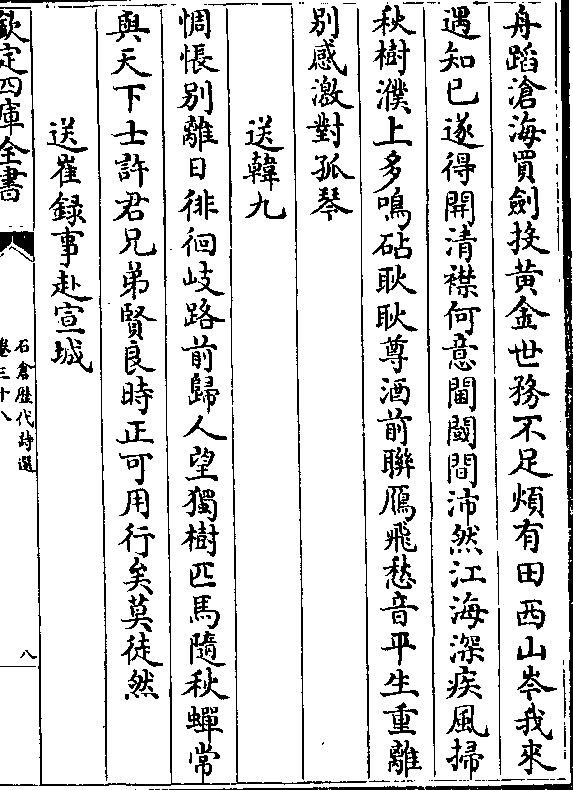 舟蹈滄海買劍投黄金世務不足煩有田西山岑我來
遇知已遂得開清襟何意閫閾間沛然江海深疾風掃
秋樹濮上多鳴砧耿耿尊酒前聯鴈飛愁音平生重離
别感激對孤琴
送韓九
惆悵别離日徘徊岐路前歸人望獨樹匹馬隨秋蟬常
與天下士許君兄弟賢良時正可用行矣莫徒然
送崔録事赴宣城
欽定四庫全書
石倉歴代詩選
卷三十八
八